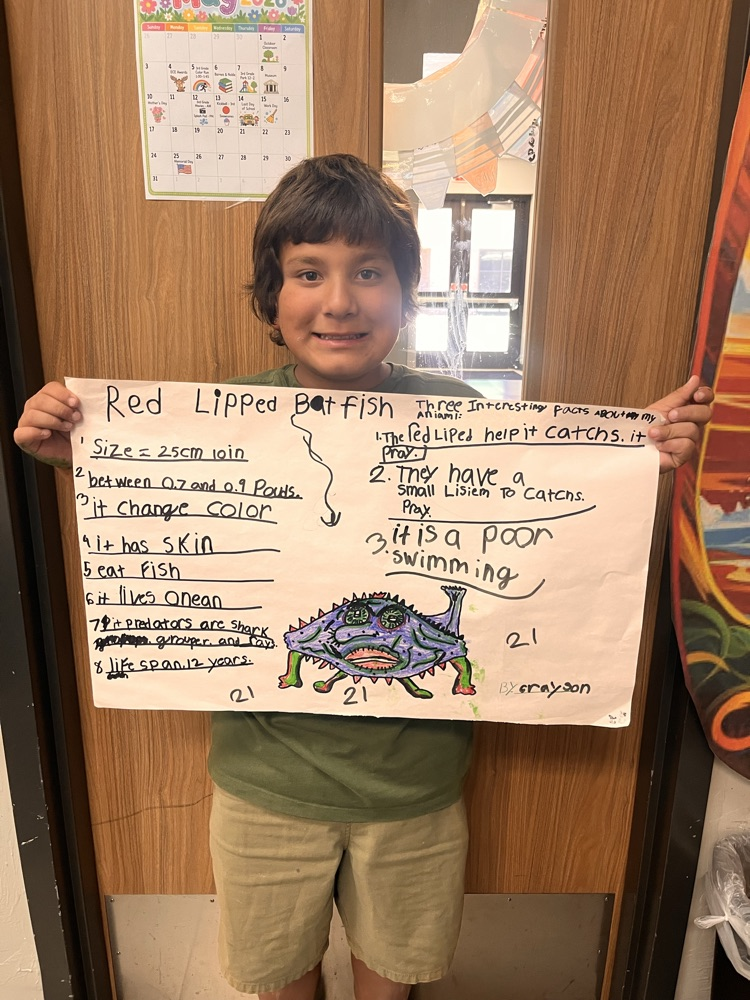 May 2026
Sunday Monday Tuesday Wednesday Thursday Friday Saturday
Red Lipped Batfish
1 Size = 25cm 10in
2 between 0.7 and 0.9 Pouds.
3 it change color
4 it has skin
5 eat fish
6 it lives Onean
7 it predators are shark
grouper and rays.
8 life span. 12 years.
Three Interesting facts ABOUT my
Aniaml:
1. The Red Liped help it catchs. it
Pray.
2. They have a
small Lisiem To Catchs.
Pray.
3. it is a poor
swimming
21
21
21
By Grayson